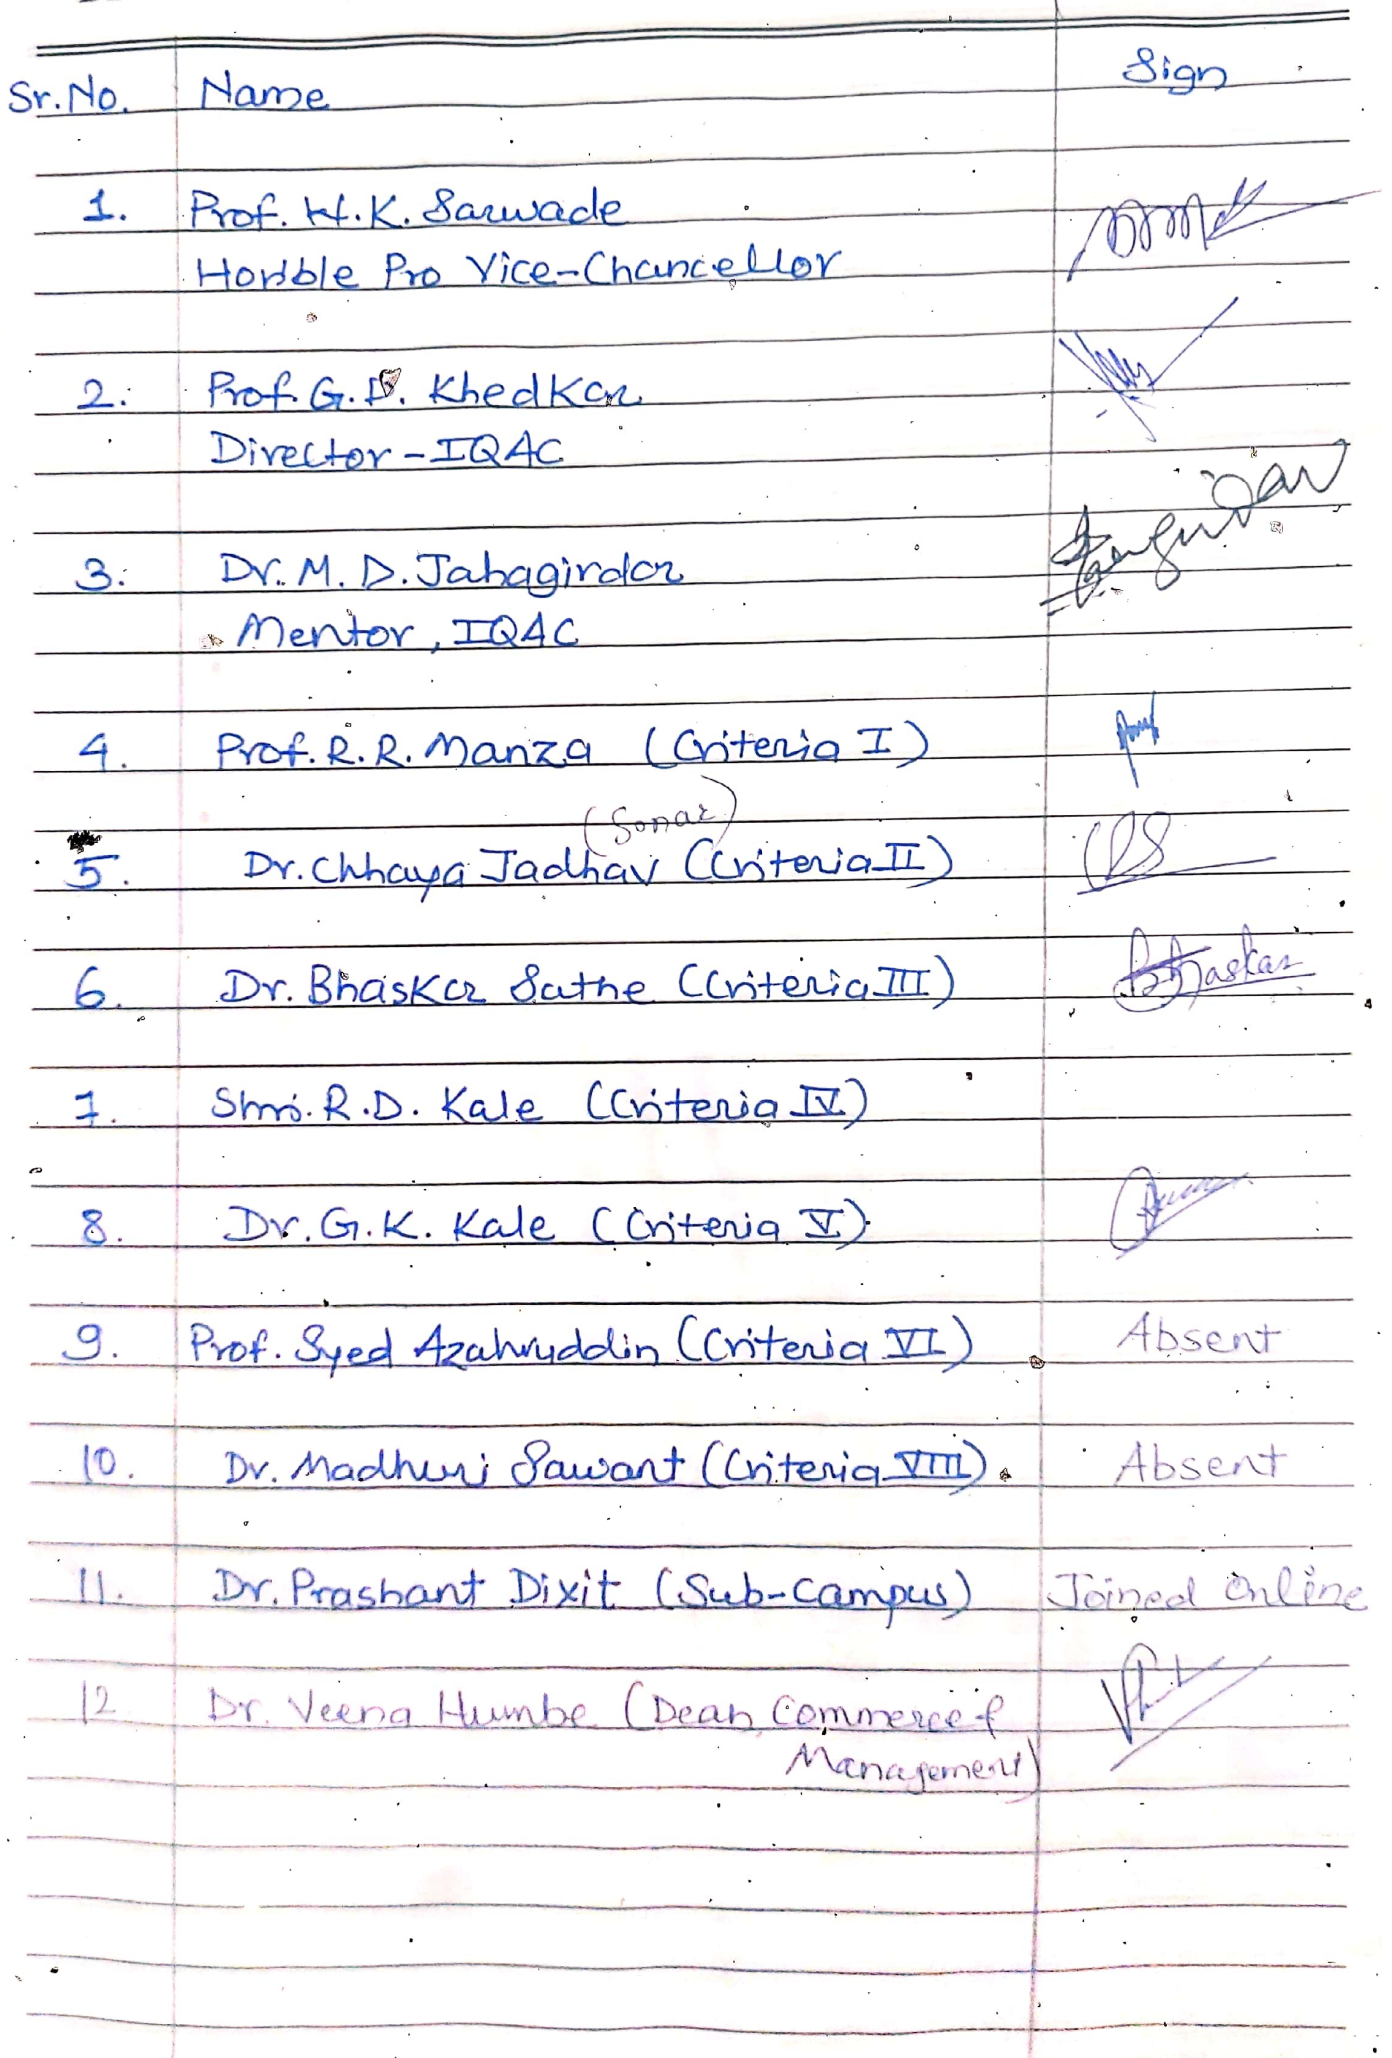 Sr.No. Name Sign
1. Prof. H.K. Sarwade
Hon'ble Pro Vice-Chancellor
2. Prof. G.D. Khedkar
Director-IQAC
3. Dr. M. D. Jahagirdar
Mentor, IQAC
4. Prof. R. R. Manza (Criteria I)
(Sonar)
5. Dr. Chhaya Jadhav (Criteria II)
6. Dr. Bhaskar Sathe (Criteria III) Bhaskar
7. Shri. R.D. Kale (Criteria IV)
8. Dr. G.K. Kale (Criteria V)
9. Prof. Syed Azahruddin (Criteria VI) Absent
10. Dr. Madhuri Sawant (Criteria VIII) Absent
11. Dr. Prashant Dixit (Sub-Campus) Joined Online
12 Dr. Veena Humbe (Dean, Commerce &
Management)